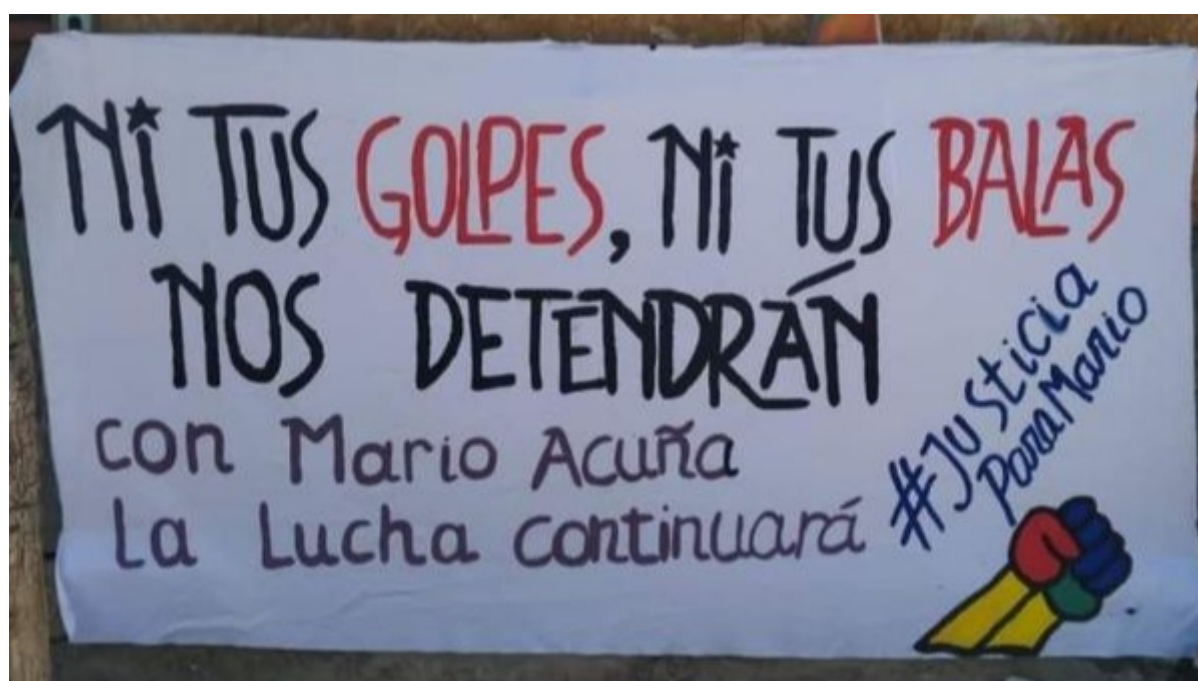 Ni TUS GOLPES, Ni TUS BALAS
NOS DETENDRÁN
con Mario Acuña
La Lucha continuará
#Justicia
ParaMario